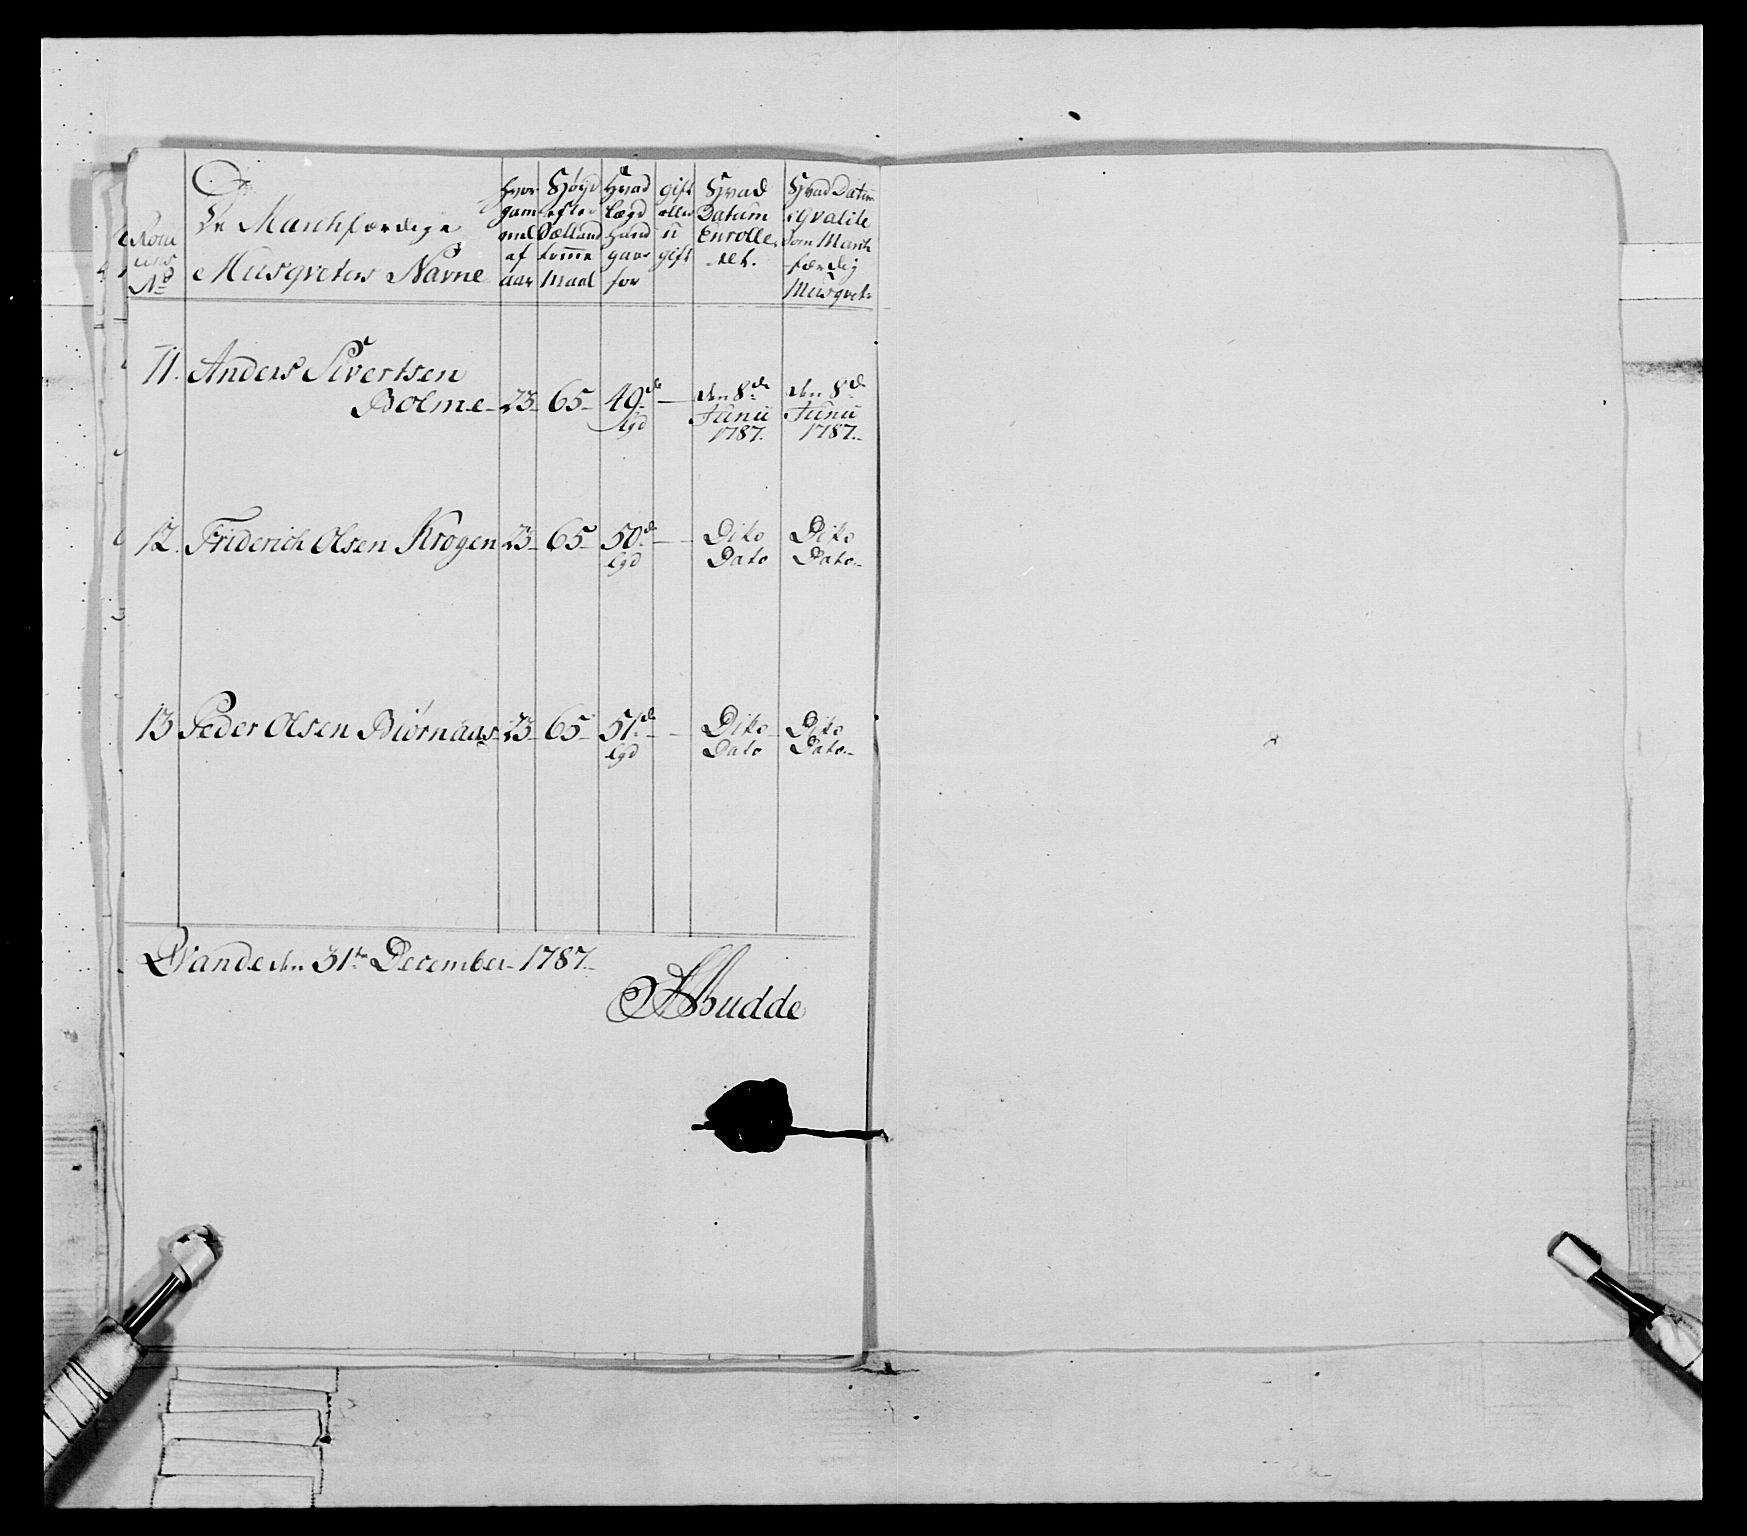 De Marchfærdige
Musqveters Navne
Hvor gam mel af aar
Høyd efter Siællands tomme Maal
Hvad Lægd hand gaar for
gift eller u gift
Hvad Datum Enrolle ret.
Hvad Datum i Qvalite som March færdig Musqvet
No
11. Anders Sivertsen
Bolme 23 65 49de lgd den 8de Junii 1787. den 8de Junii 1787.
12. Friderich Olsen Krogen 23 65 50de lgd Dito Dato Dito Dato
13 Peder Olsen Biørnaas 23 65 51de lgd Dito Dato Dito Dato
den 31te December 1787.
Budde